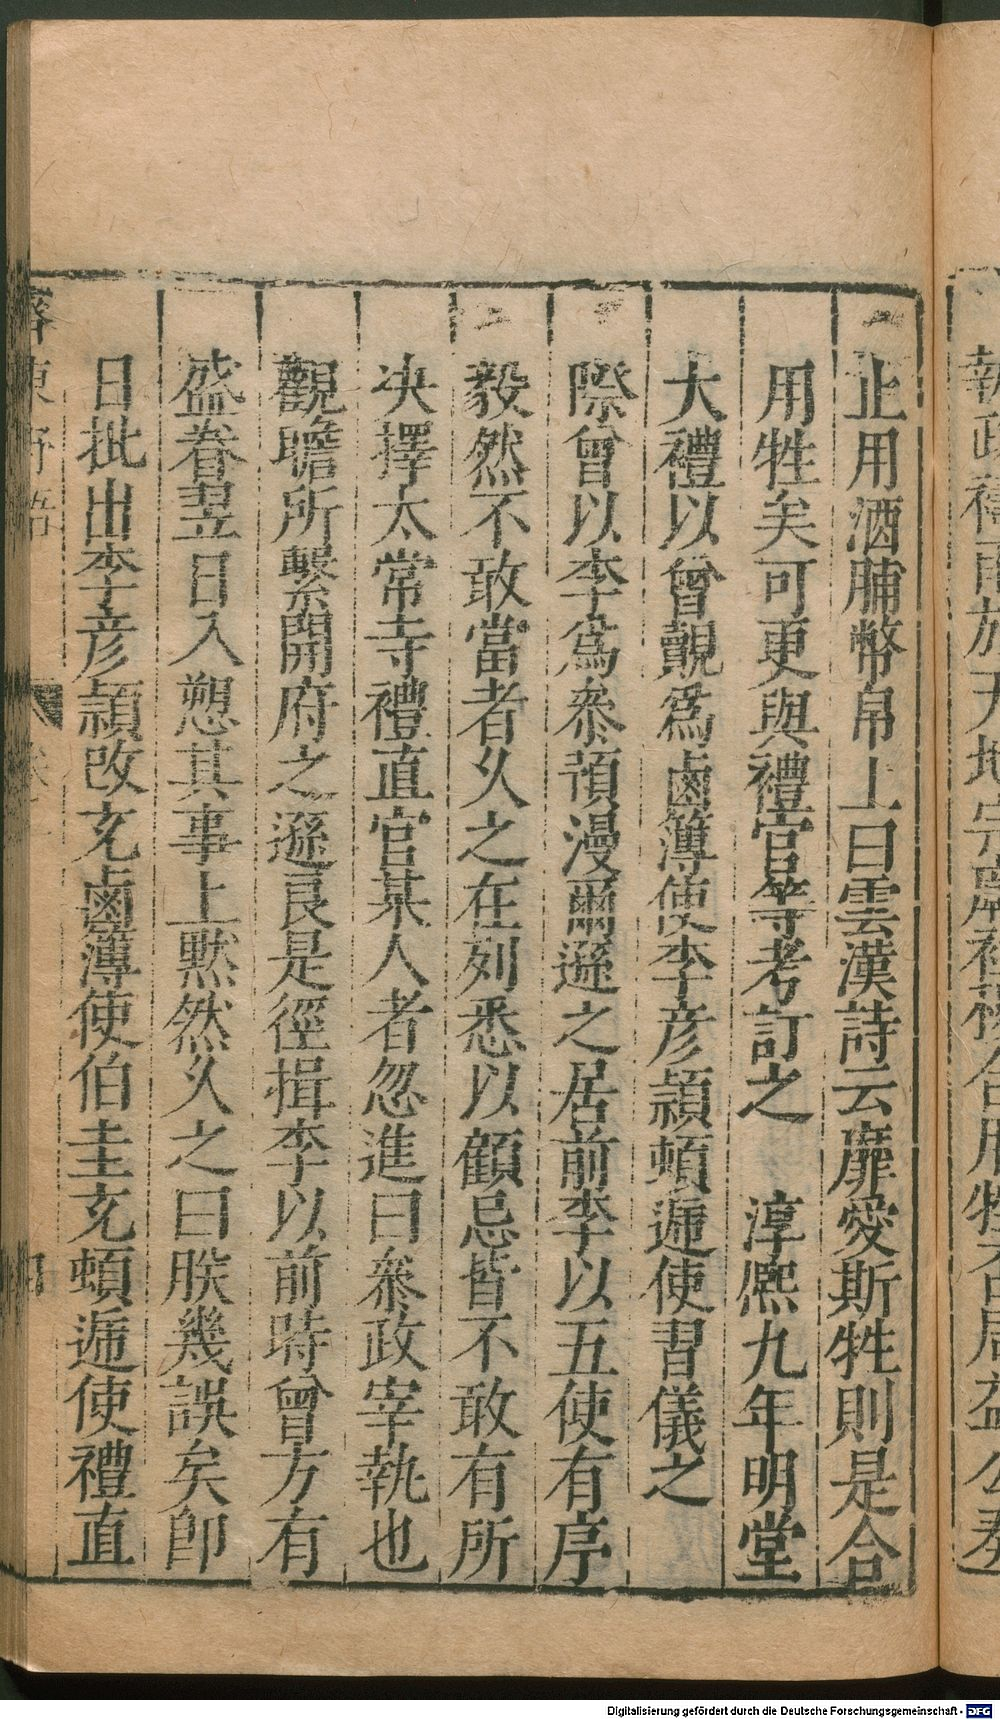 止用酒脯幣帛上曰雲漢詩云靡愛斯牲則是合
用牲矣可更與禮官等考訂之 淳熈九年明堂
大禮以曾覿爲鹵簿使李彦頴頓遞使習儀之
際曾以李爲叅預漫爾遜之居前李以五使有序
毅然不敢當者乆之在列悉以顧忌皆不敢有所
决擇太常寺禮直官某人者忽進曰叅政宰執也
觀瞻所繫開府之遜良是徑揖李以前時曾方有
盛眷翌日入愬其事上黙然乆之曰朕幾誤矣卽
日批出李彦頴改充鹵簿使伯圭充頓遞使禮直
Digitalisierung gefördert durch die Deutsche Forschungsgemeinschaft - DFG